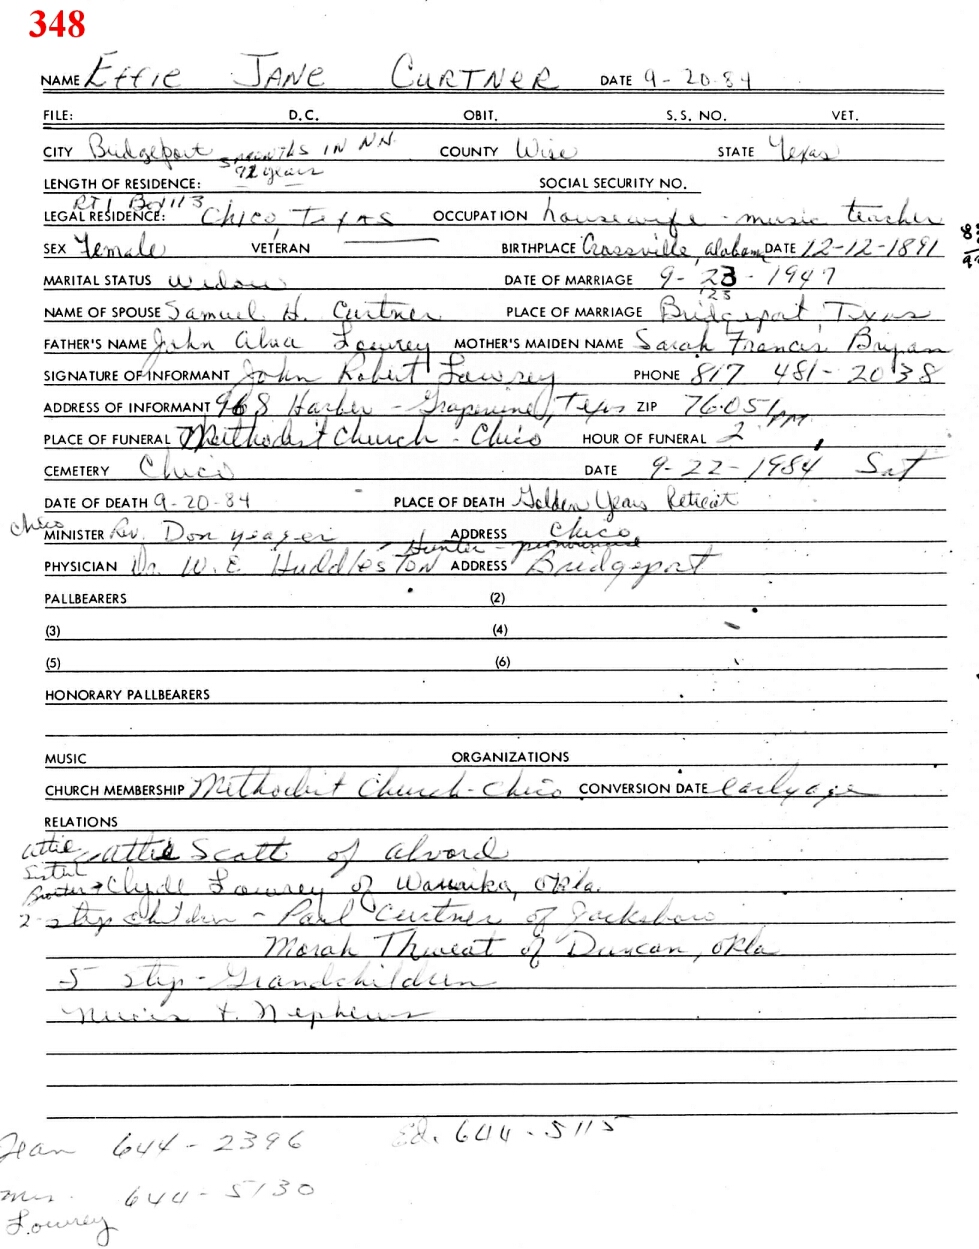 348
NAME Effie Jane Curtner DATE 9-20-84
FILE: D.C. OBIT. S.S. NO. VET.
CITY Bridgeport 5 months in N.H. COUNTY Wise STATE Texas
LENGTH OF RESIDENCE: 92 years SOCIAL SECURITY NO.
RT 1 Box 113
LEGAL RESIDENCE: Chico Texas OCCUPATION housewife - music teacher
SEX Female VETERAN BIRTHPLACE Crossville, Alabam DATE 12-12-1891
MARITAL STATUS Widow DATE OF MARRIAGE 9-23-1947
NAME OF SPOUSE Samuel H. Curtner PLACE OF MARRIAGE Bridgeport, Texas
FATHER'S NAME John Alva Lowrey MOTHER'S MAIDEN NAME Sarah Francis Bryan
SIGNATURE OF INFORMANT John Robert Lowrey PHONE 817 481-2038
ADDRESS OF INFORMANT 968 Harber - Grapevine, Texas ZIP 76051
PLACE OF FUNERAL Methodist Church - Chico HOUR OF FUNERAL 2 PM
CEMETERY Chico DATE 9-22-1984 Sat
DATE OF DEATH 9-20-84 PLACE OF DEATH Golden Years Retreat
Chico MINISTER Rev. Don Yeager ADDRESS Chico
Hunter - pronounced
PHYSICIAN Dr. W.E Huddleston ADDRESS Bridgeport
PALLBEARERS (2)
(3) (4)
(5) (6)
HONORARY PALLBEARERS
MUSIC ORGANIZATIONS
CHURCH MEMBERSHIP Methodist Church-Chico CONVERSION DATE early age
RELATIONS
Attie Attie Scott of Alvord
Sister
Brother Clyde Lowrey of Waurika, Okla.
2-step children - Paul Curtner of Jacksboro
Morah Threat of Duncan, Okla
5 step-Grandchildren
Nieces + Nephews
Jean 644-2396 Ed. 644-5115
Mrs. 644-5130
Lowrey